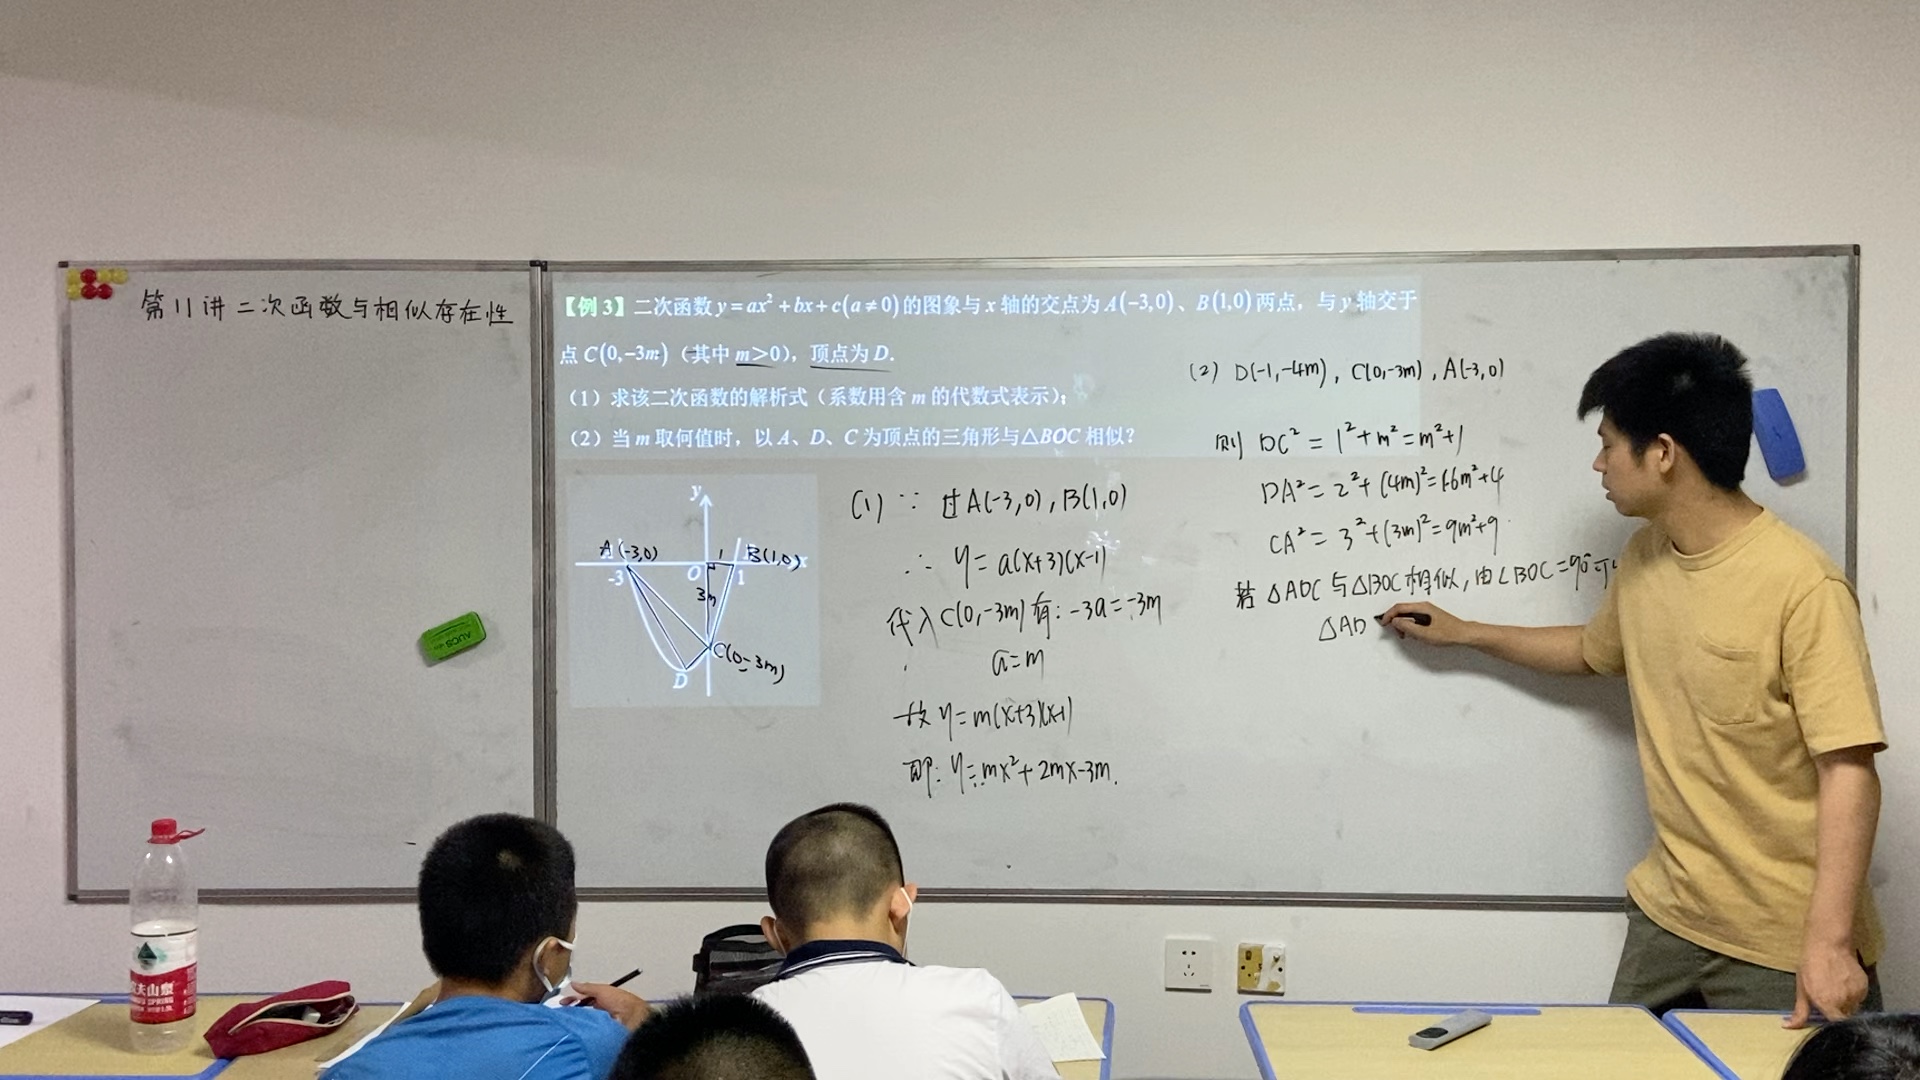 第11讲 二次函数与相似存在性
【例 3】二次函数 y=ax²+bx+c(a≠0) 的图象与 x 轴的交点为 A(-3,0)、B(1,0) 两点，与 y 轴交于
点 C(0,-3m)（其中 m>0），顶点为 D.
（1）求该二次函数的解析式（系数用含 m 的代数式表示）；
（2）当 m 取何值时，以 A、D、C 为顶点的三角形与△BOC 相似？
y
A(-3,0) 1 B(1,0) x
-3 O 1
3m
C(0,-3m)
D
(1) ∵ 过A(-3,0), B(1,0)
∴ y=a(x+3)(x-1)
代入C(0,-3m)有: -3a=-3m
a=m
故 y=m(x+3)(x-1)
即: y=mx²+2mx-3m.
(2) D(-1,-4m), C(0,-3m), A(-3,0)
则 DC²=1²+m²=m²+1
DA²=2²+(4m)²=16m²+4
CA²=3²+(3m)²=9m²+9
若△ADC与△BOC相似,由∠BOC=90°可
△AD
AUCS